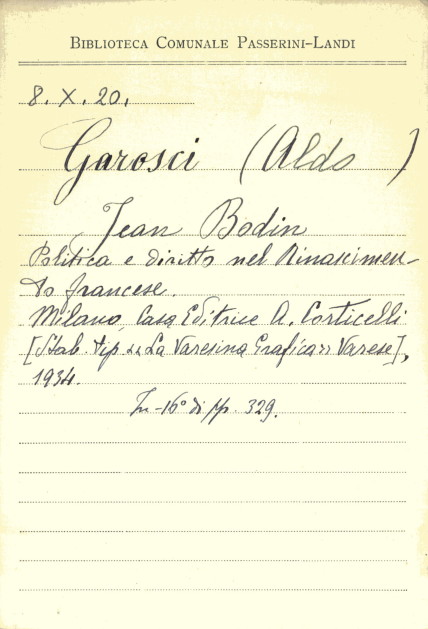 BIBLIOTECA COMUNALE PASSERINI-LANDI
8. X. 20.
Garosci (Aldo)
Jean Bodin
Politica e diritto nel Rinascimen-
to francese.
Milano, Casa Editrice A. Corticelli
[Stab. tip. "La Varesina Grafica" Varese],
1934.
In-16° di pp. 329.